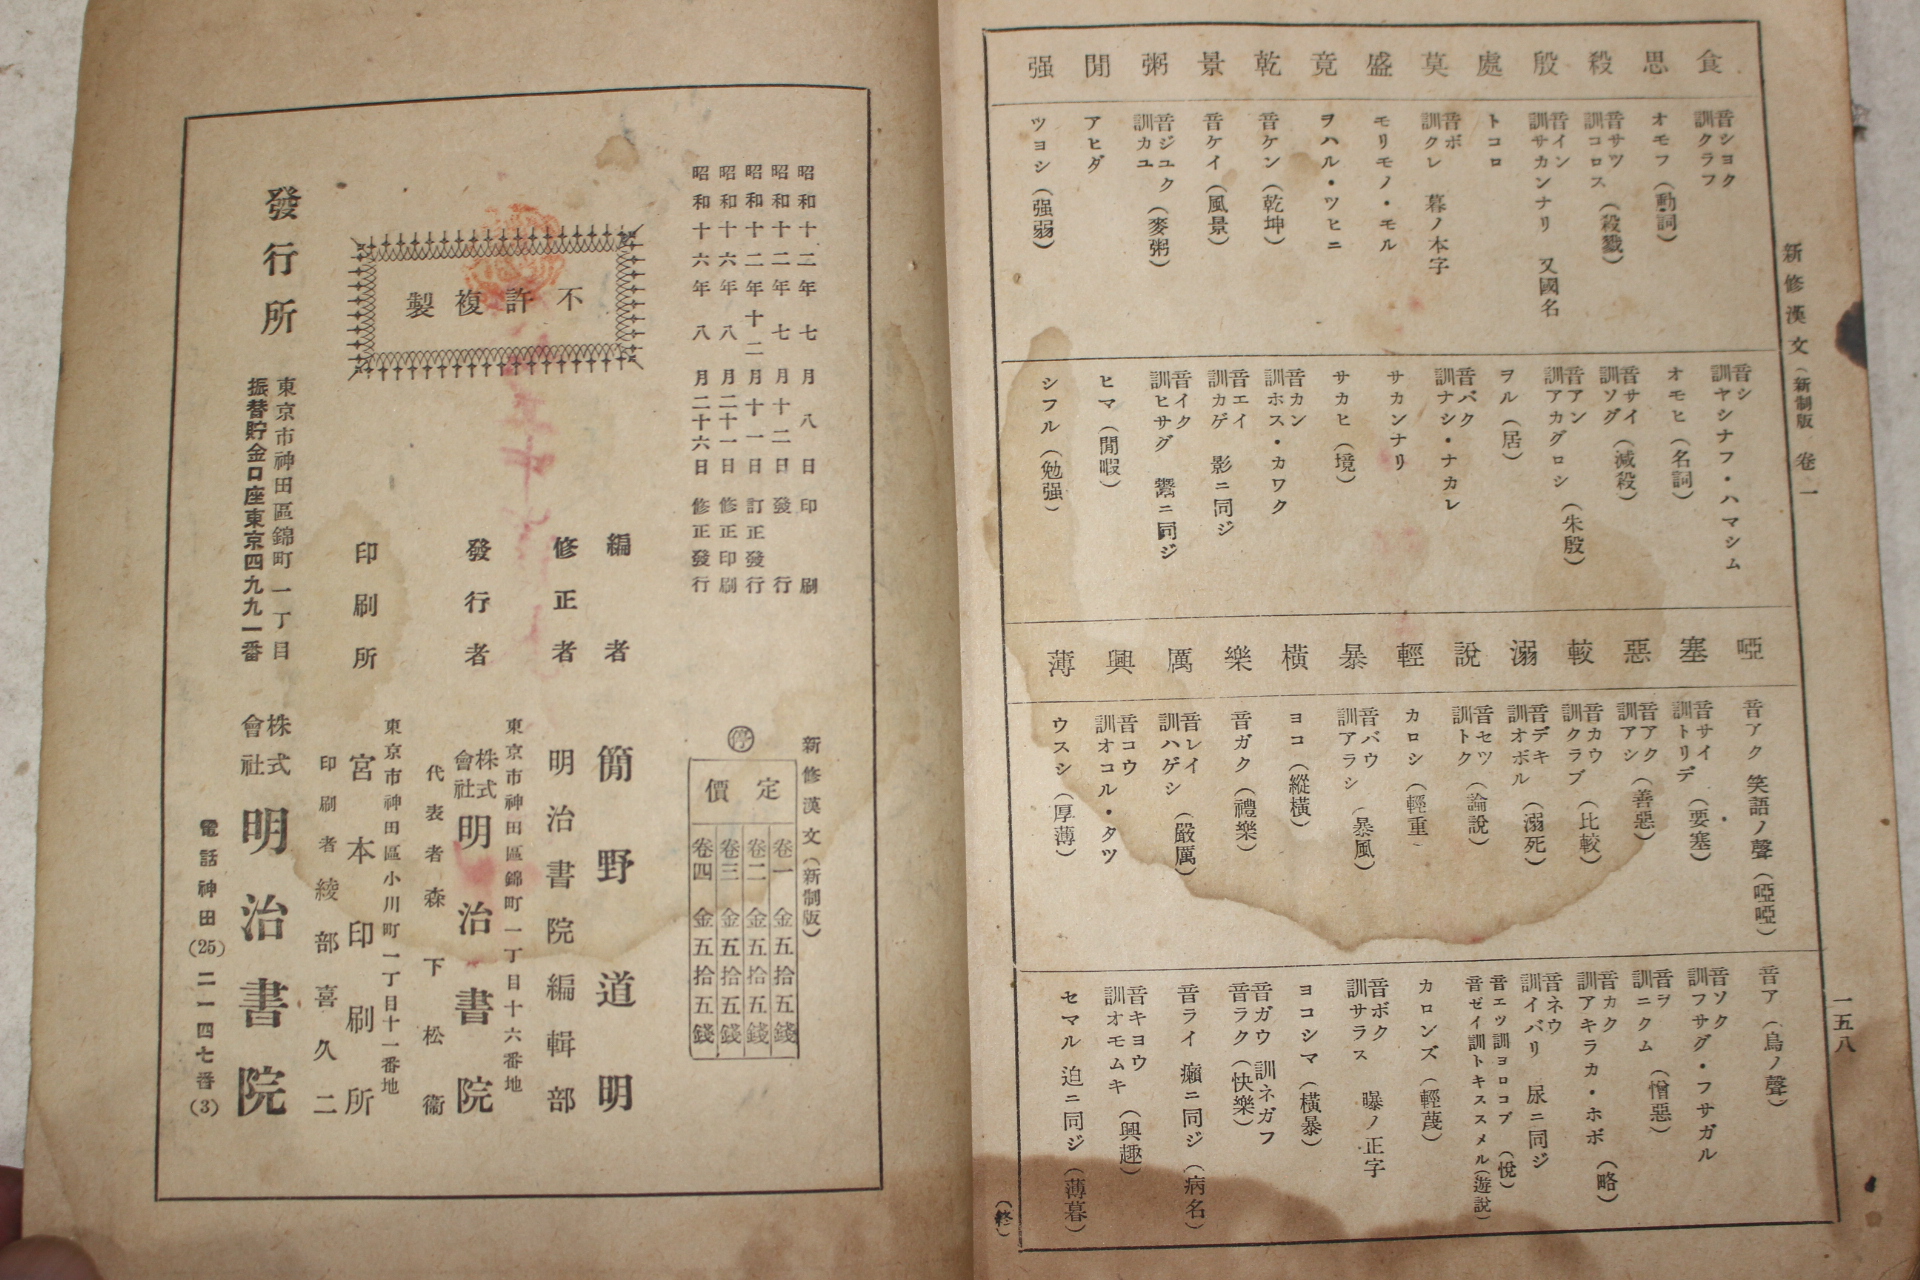 新修漢文（新制版） 卷一
一五八
食 音シヨク 訓クラフ
音シ 訓ヤシナフ・ハマシム
思 オモフ（動詞）
オモヒ（名詞）
殺 音サツ 訓コロス（殺戮）
音サイ 訓ソグ（減殺）
殷 音イン 訓サカンナリ 又國名
音アン 訓アカグロシ（朱殷）
處 トコロ
ヲル（居）
莫 音ボ 訓クレ 暮ノ本字
音バク 訓ナシ・ナカレ
盛 モリモノ・モル
サカンナリ
竟 ヲハル・ツヒニ
サカヒ（境）
乾 音ケン（乾坤）
音カン 訓ホス・カワク
景 音ケイ（風景）
音エイ 訓カゲ 影ニ同ジ
粥 音ジユク 訓カユ（麥粥）
音イク 訓ヒサグ 鬻ニ同ジ
閒 アヒダ
ヒマ（閒暇）
强 ツヨシ（强弱）
シフル（勉强）
啞 音アク 笑語ノ聲（啞啞）
音ア（鳥ノ聲）
塞 音サイ 訓トリデ（要塞）
音ソク 訓フサグ・フサガル
惡 音アク 訓アシ（善惡）
音ヲ 訓ニクム（憎惡）
較 音カウ 訓クラブ（比較）
音カク 訓アキラカ・ホボ（略）
溺 音デキ 訓オボル（溺死）
音ネウ 訓イバリ 尿ニ同ジ
說 音セツ 訓トク（論說）
音エツ訓ヨロコブ（悅）
音ゼイ訓トキススメル（遊說）
輕 カロシ（輕重）
カロンズ（輕蔑）
暴 音バウ 訓アラシ（暴風）
音ボク 訓サラス 曝ノ正字
橫 ヨコ（縱橫）
ヨコシマ（橫暴）
樂 音ガク（禮樂）
音ガウ 訓ネガフ
音ラク（快樂）
厲 音レイ 訓ハゲシ（嚴厲）
音ライ 癩ニ同ジ（病名）
興 音コウ 訓オコル・タツ
音キヨウ 訓オモムキ（興趣）
薄 ウスシ（厚薄）
セマル 迫ニ同ジ（薄暮）
（終）
昭和十二年 七月 八日印刷
昭和十二年 七月十二日發行
昭和十二年十二月十一日訂正發行
昭和十六年 八月二十一日修正印刷
昭和十六年 八月二十六日修正發行
新修漢文（新制版）
停
定價
卷一 金五拾五錢
卷二 金五拾五錢
卷三 金五拾五錢
卷四 金五拾五錢
不許複製
編者 簡野道明
修正者 明治書院編輯部
東京市神田區錦町一丁目十六番地
發行者 株式會社 明治書院
代表者 森下松衞
東京市神田區小川町一丁目十一番地
印刷所 宮本印刷所
印刷者 綾部喜久二
發行所
東京市神田區錦町一丁目
振替貯金口座東京四九九一番
株式會社 明治書院
電話神田(25)二一四七番(3)